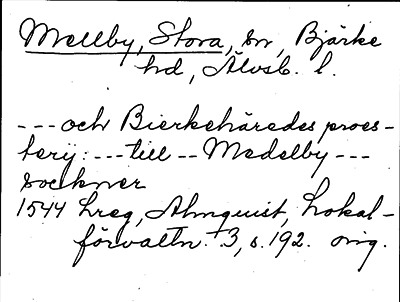 Mellby, Stora, sn, Bjärke
hd, Älvsb. l.
--- och Bierkehäredes proes-
terij: --- till -- Medelby ---
sockner
1544 Lreg, Almquist, Lokal-
förvaltn. 3, s. 192. orig.